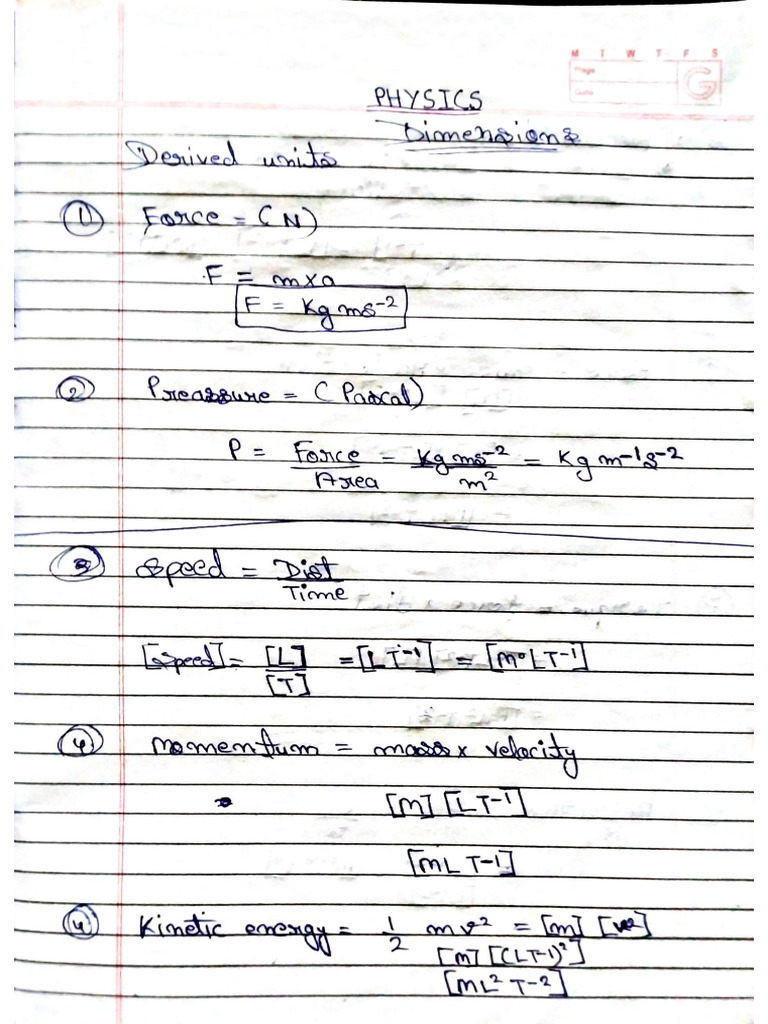 M T W T F S
Page
Date
G
PHYSICS
Dimensions
Derived units
① Force = (N)
F = m×a
F = Kg ms⁻²
② Preassure = (Pascal)
P = Force/Area = Kg ms⁻²/m² = Kg m⁻¹s⁻²
③ speed = Dist/Time
[speed] = [L]/[T] = [L T⁻¹] = [M⁰LT⁻¹]
④ Momentum = mass × velocity
[M] [LT⁻¹]
[MLT⁻¹]
④ Kinetic energy = 1/2 mv² = [m] [v²]
[M] [(LT-1)²]
[ML²T⁻²]